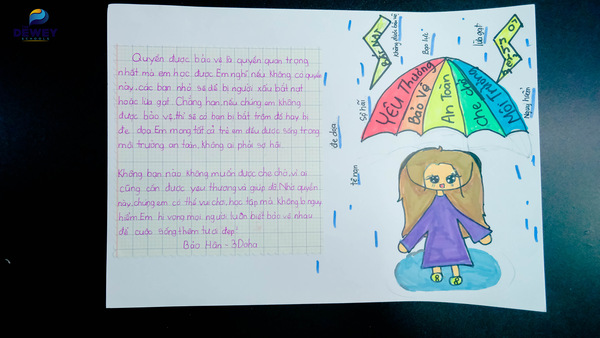 DEWEY
SCHOOLS
Quyền được bảo vệ là quyền quan trọng
nhất mà em học được. Em nghĩ nếu không có quyền
này, các bạn nhỏ sẽ dễ bị người xấu bắt nạt
hoặc lừa gạt. Chẳng hạn, nếu chúng em không
được bảo vệ, thì sẽ có bạn bị bắt trộm đồ hay bị
đe dọa. Em mong tất cả trẻ em đều được sống trong
môi trường an toàn, không ai phải sợ hãi.
Không bạn nào không muốn được che chở, vì ai
cũng cần được yêu thương và giúp đỡ. Nhờ quyền
này, chúng em có thể vui chơi, học tập mà không bị nguy
hiểm. Em hi vọng mọi người luôn biết bảo vệ nhau
để cuộc sống thêm tươi đẹp.
Bảo Hân - 3Doha
BẮT NẠT
không được bảo vệ
Bạo lực
lừa gạt
Sợ hãi
YÊU Thương
Bảo Vệ
An Toàn
che chở
Môi Trường
Nguy hiểm
đe dọa
tệ nạn